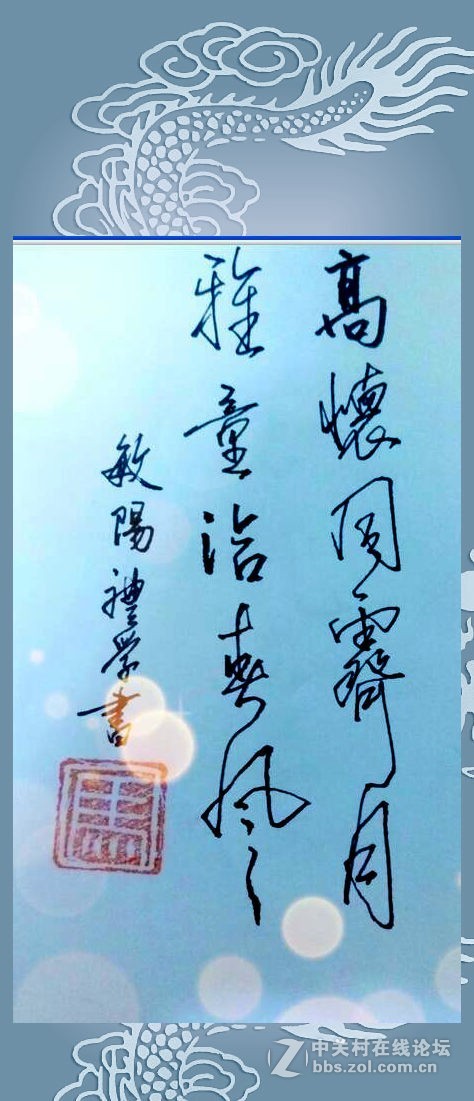 高懷同霽月
雅量洽春風
敏陽禮学書
中关村在线论坛
bbs.zol.com.cn